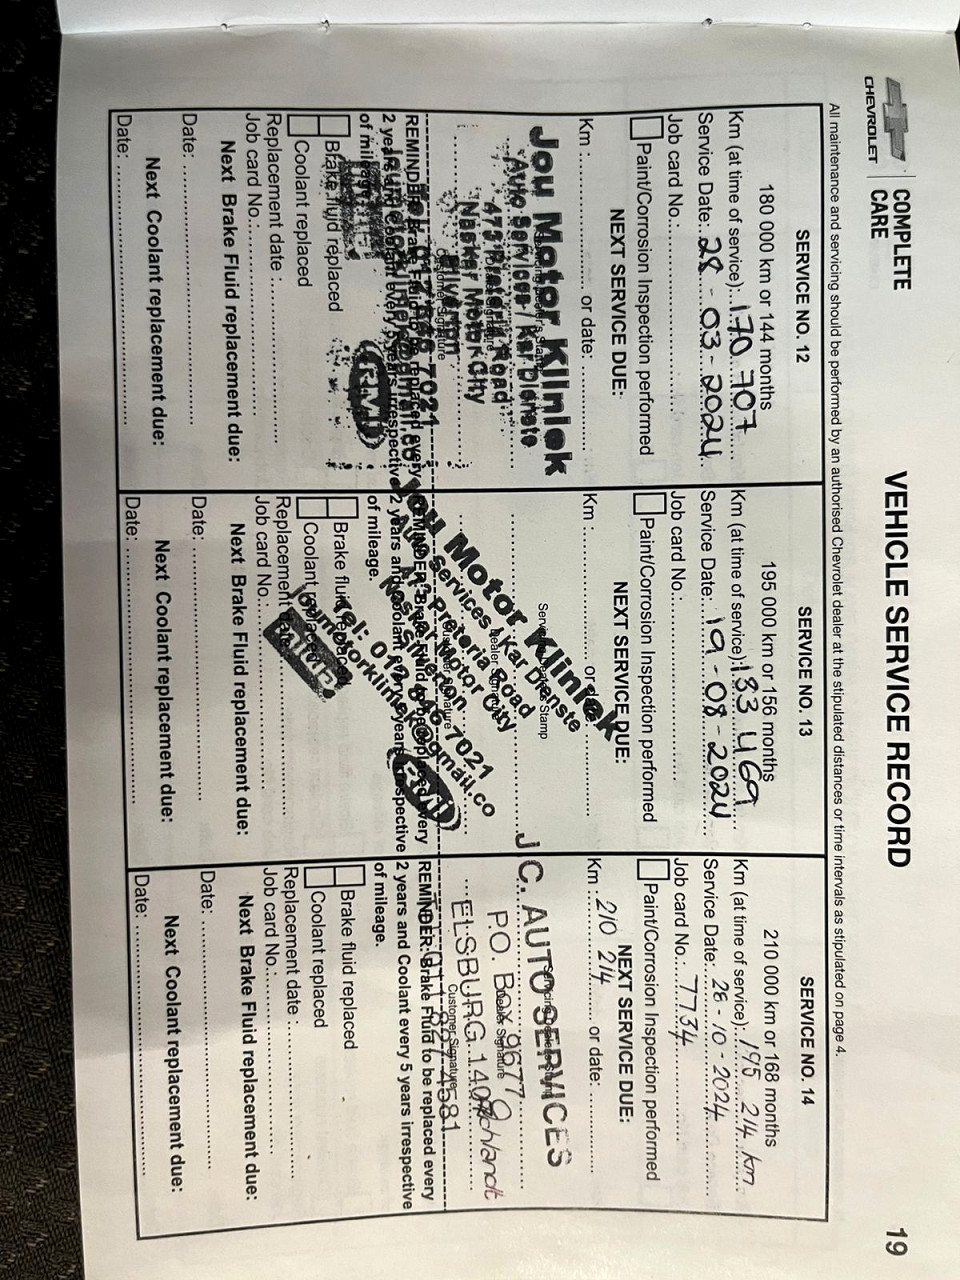 CHEVROLET
COMPLETE
CARE
VEHICLE SERVICE RECORD
19
All maintenance and servicing should be performed by an authorised Chevrolet dealer at the stipulated distances or time intervals as stipulated on page 4.
SERVICE NO. 12
180 000 km or 144 months
Km (at time of service): 170 707
Service Date: 28 - 03 - 2024
Job card No.:
Paint/Corrosion Inspection performed
NEXT SERVICE DUE:
Km : or date:
Jou Motor Kliniek
Auto Services / Kar Dienste
473 Pretoria Road
Nasser Motor City
Silverton
Customer Signature
REMINDER: Brake Fluid to be replaced every
2 years and Coolant every 5 years irrespective
of mileage.
Brake fluid replaced
Coolant replaced
Replacement date :
Job card No.:
Next Brake Fluid replacement due:
Date:
Next Coolant replacement due:
Date:
SERVICE NO. 13
195 000 km or 156 months
Km (at time of service): 183 469
Service Date: 19 - 08 - 2024
Job card No.:
Paint/Corrosion Inspection performed
NEXT SERVICE DUE:
Km : or date:
Jou Motor Kliniek
Auto Services / Kar Dienste
473 Pretoria Road
Nasser Motor City
Silverton
Tel: 012 846 7021
joumotorkliniek@gmail.co
REMINDER: Brake Fluid to be replaced every
2 years and Coolant every 5 years irrespective
of mileage.
Brake fluid replaced
Coolant replaced
Replacement date :
Job card No.:
Next Brake Fluid replacement due:
Date:
Next Coolant replacement due:
Date:
SERVICE NO. 14
210 000 km or 168 months
Km (at time of service): 195 214 km
Service Date: 28 - 10 - 2024
Job card No.: 7734
Paint/Corrosion Inspection performed
NEXT SERVICE DUE:
Km : 210 214 or date:
J.C. AUTO SERVICES
Dealer Signature
P.O. Box 9677
ELSBURG 1407
Customer Signature
REMINDER: Brake Fluid to be replaced every
2 years and Coolant every 5 years irrespective
of mileage.
Brake fluid replaced
Coolant replaced
Replacement date :
Job card No.:
Next Brake Fluid replacement due:
Date:
Next Coolant replacement due:
Date: